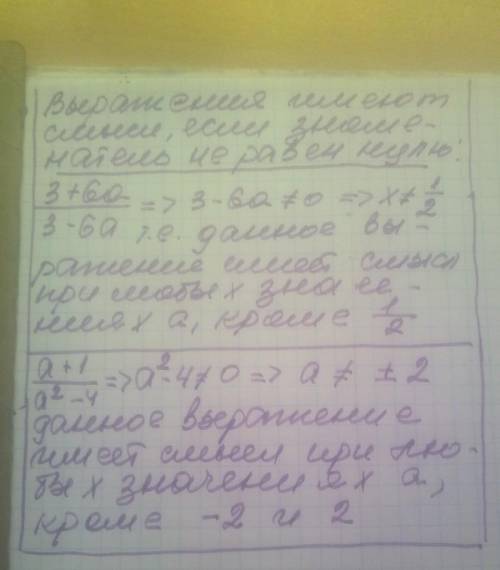 Выражения имеют
смысл, если знаме-
натель не равен нулю:
3+6a/3-6a => 3-6a≠0 => x≠1/2
т.е. данное вы-
ражение имеет смысл
при любых значе-
ниях a, кроме 1/2
a+1/a²-4 => a²-4≠0 => a≠±2
данное выражение
имеет смысл при лю-
бых значениях a,
кроме -2 и 2